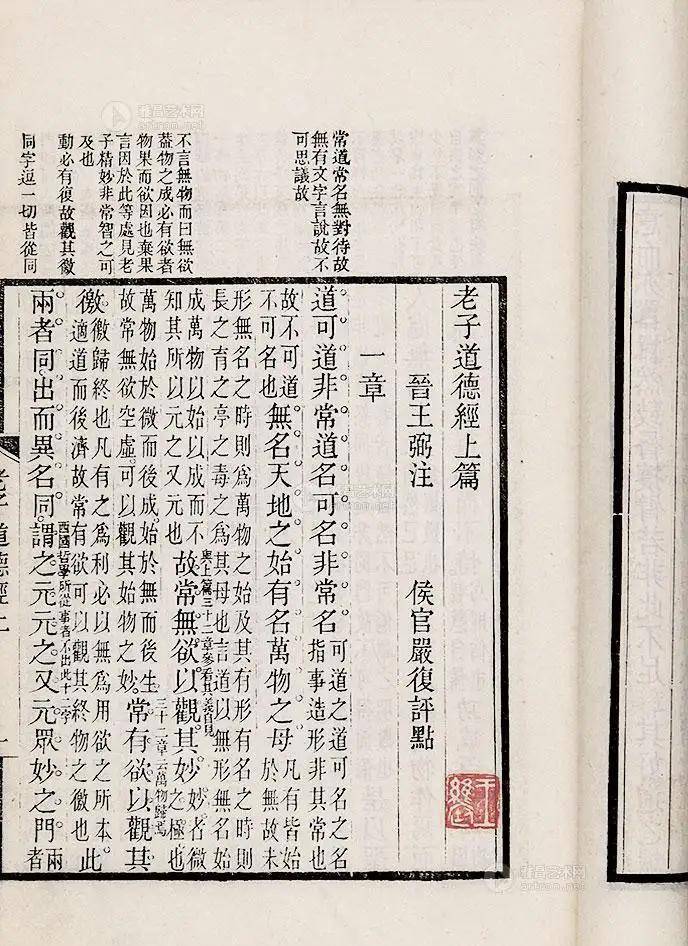 雅昌艺术网
artron.net
常道常名無對待故
無有文字言說故不
可思議故
不言無物而曰無欲
葢物之成必有欲者
物果而欲因也棄果
言因於此等處見老
子精妙非常智之可
及也
動必有復故觀其徼
同字逗一切皆從同
老子道德經上篇
晉王弼注 侯官嚴復評點
一章
道可道。非常道。名可名。非常名。
可道之道可名之名
指事造形非其常也
故不可道
不可名也
無名天地之始有名萬物之母
凡有皆始
於無故未
形無名之時則爲萬物之始及其有形有名之時則
長之育之亭之毒之爲其母也言道以無形無名始
成萬物以始以成而不
知其所以元之又元也
故常無欲以觀其妙。
與上篇三十二章參看其義自見
妙者微
之極也
萬物始於微而後成始於無而後生
故常無欲空虛可以觀其始物之妙
常有欲以觀其
三十二章云萬物歸焉
徼。
徼歸終也凡有之爲利必以無爲用欲之所本
適道而後濟故常有欲可以觀其終物之徼也
此
兩者同出而異名同。謂之元元之又元眾妙之門。
西國哲學所從事者不出此十二字
兩
者
道德經上
一